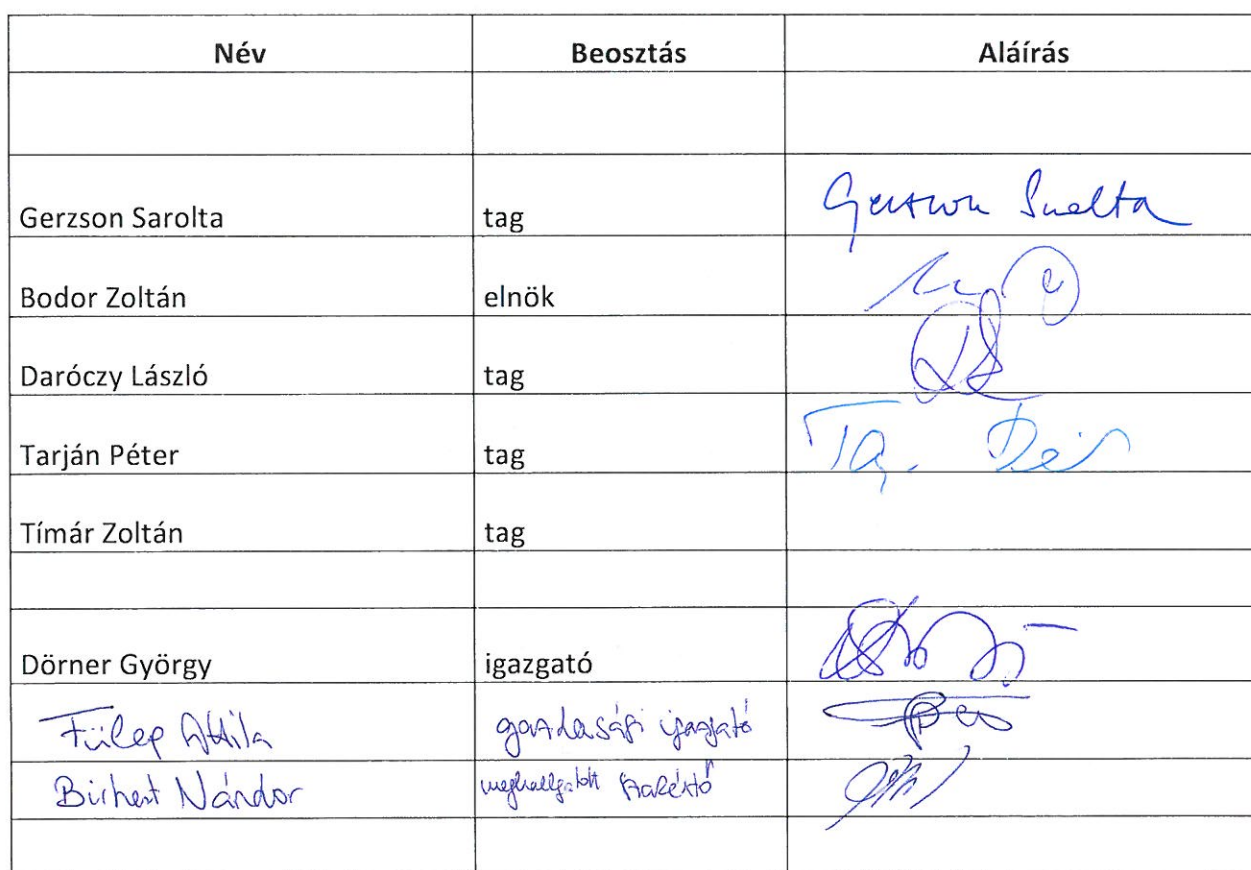 Név Beosztás Aláírás
Gerzson Sarolta tag Gerzson Sarolta
Bodor Zoltán elnök
Daróczy László tag
Tarján Péter tag
Tímár Zoltán tag
Dörner György igazgató
Fülep Attila gazdasági igazgató
Nándor meghallgatott szakértő